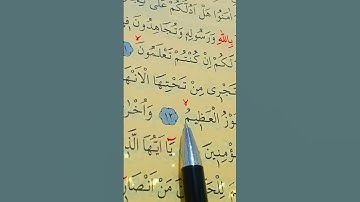 اٰمَنُوا هَلْ اَدُلُّكُمْ عَلٰى
بِاللّٰهِ وَرَسُولِهٖ وَتُجَاهِدُونَ
لَكُمْ اِنْ كُنْتُمْ تَعْلَمُونَ
تَجْرٖى مِنْ تَحْتِهَا الْاَنْهَا
وْزُ الْعَظٖيمُ ١٢ وَاُخْرٰ
ؤْمِنٖينَ يَٓا اَيُّهَا الَّذ
مَنْ اَنْصَارٖ